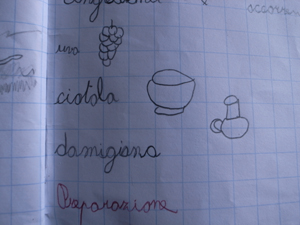 uva
ciotola
damigiana
Preparazione